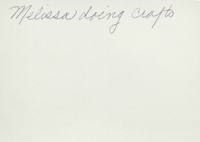 Melissa doing crafts